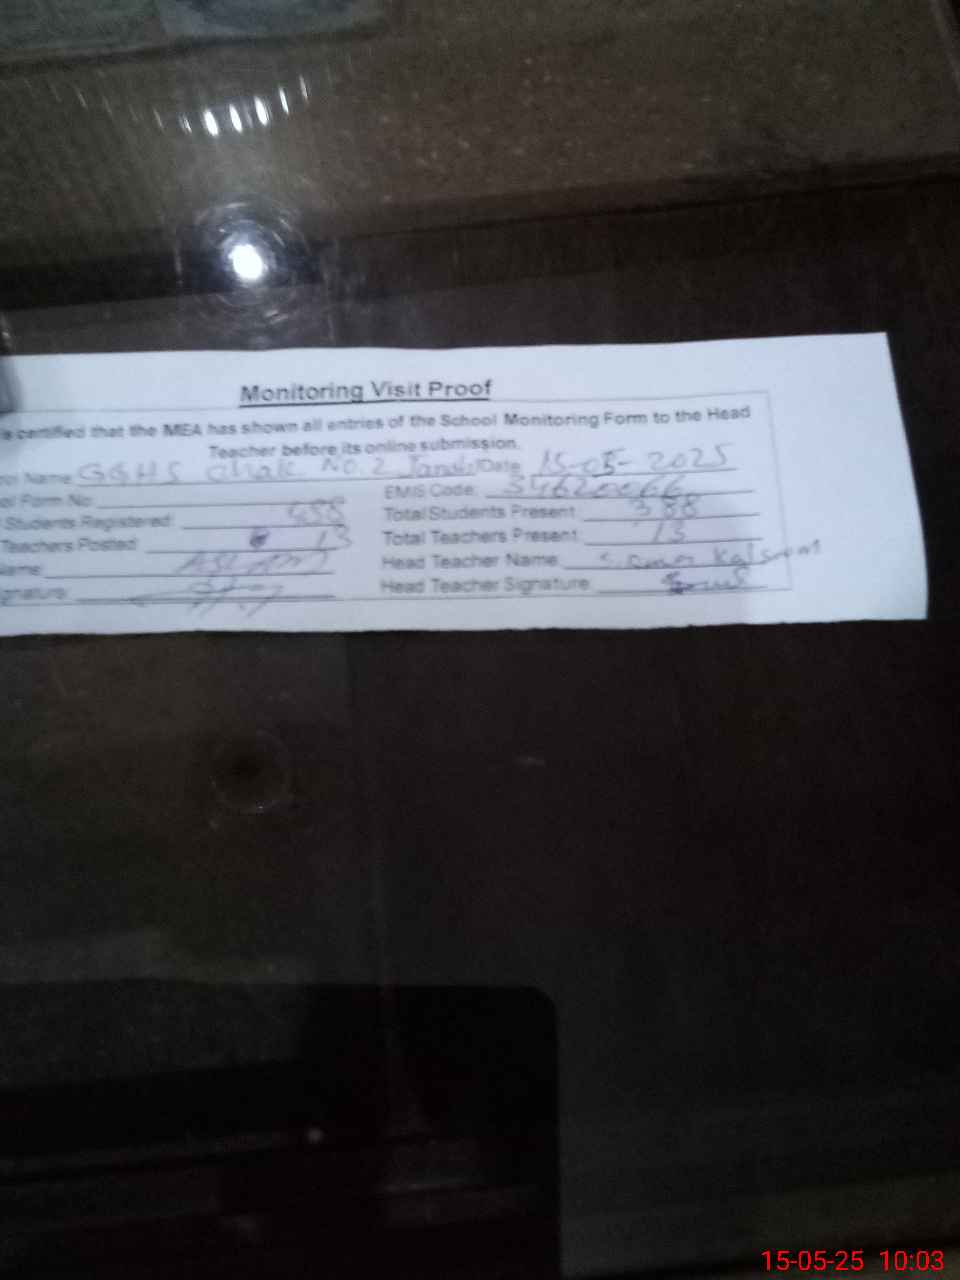 Monitoring Visit Proof
is certified that the MEA has shown all entries of the School Monitoring Form to the Head
Teacher before its online submission.
Name GGHS Chak No.2 Date 15-05-2025
ol Form No EMIS Code: 34620066
Students Registered: 458 Total Students Present: 388
Teachers Posted: 13 Total Teachers Present: 13
Name: Head Teacher Name: Kalsoom
gnature: Head Teacher Signature:
15-05-25 10:03